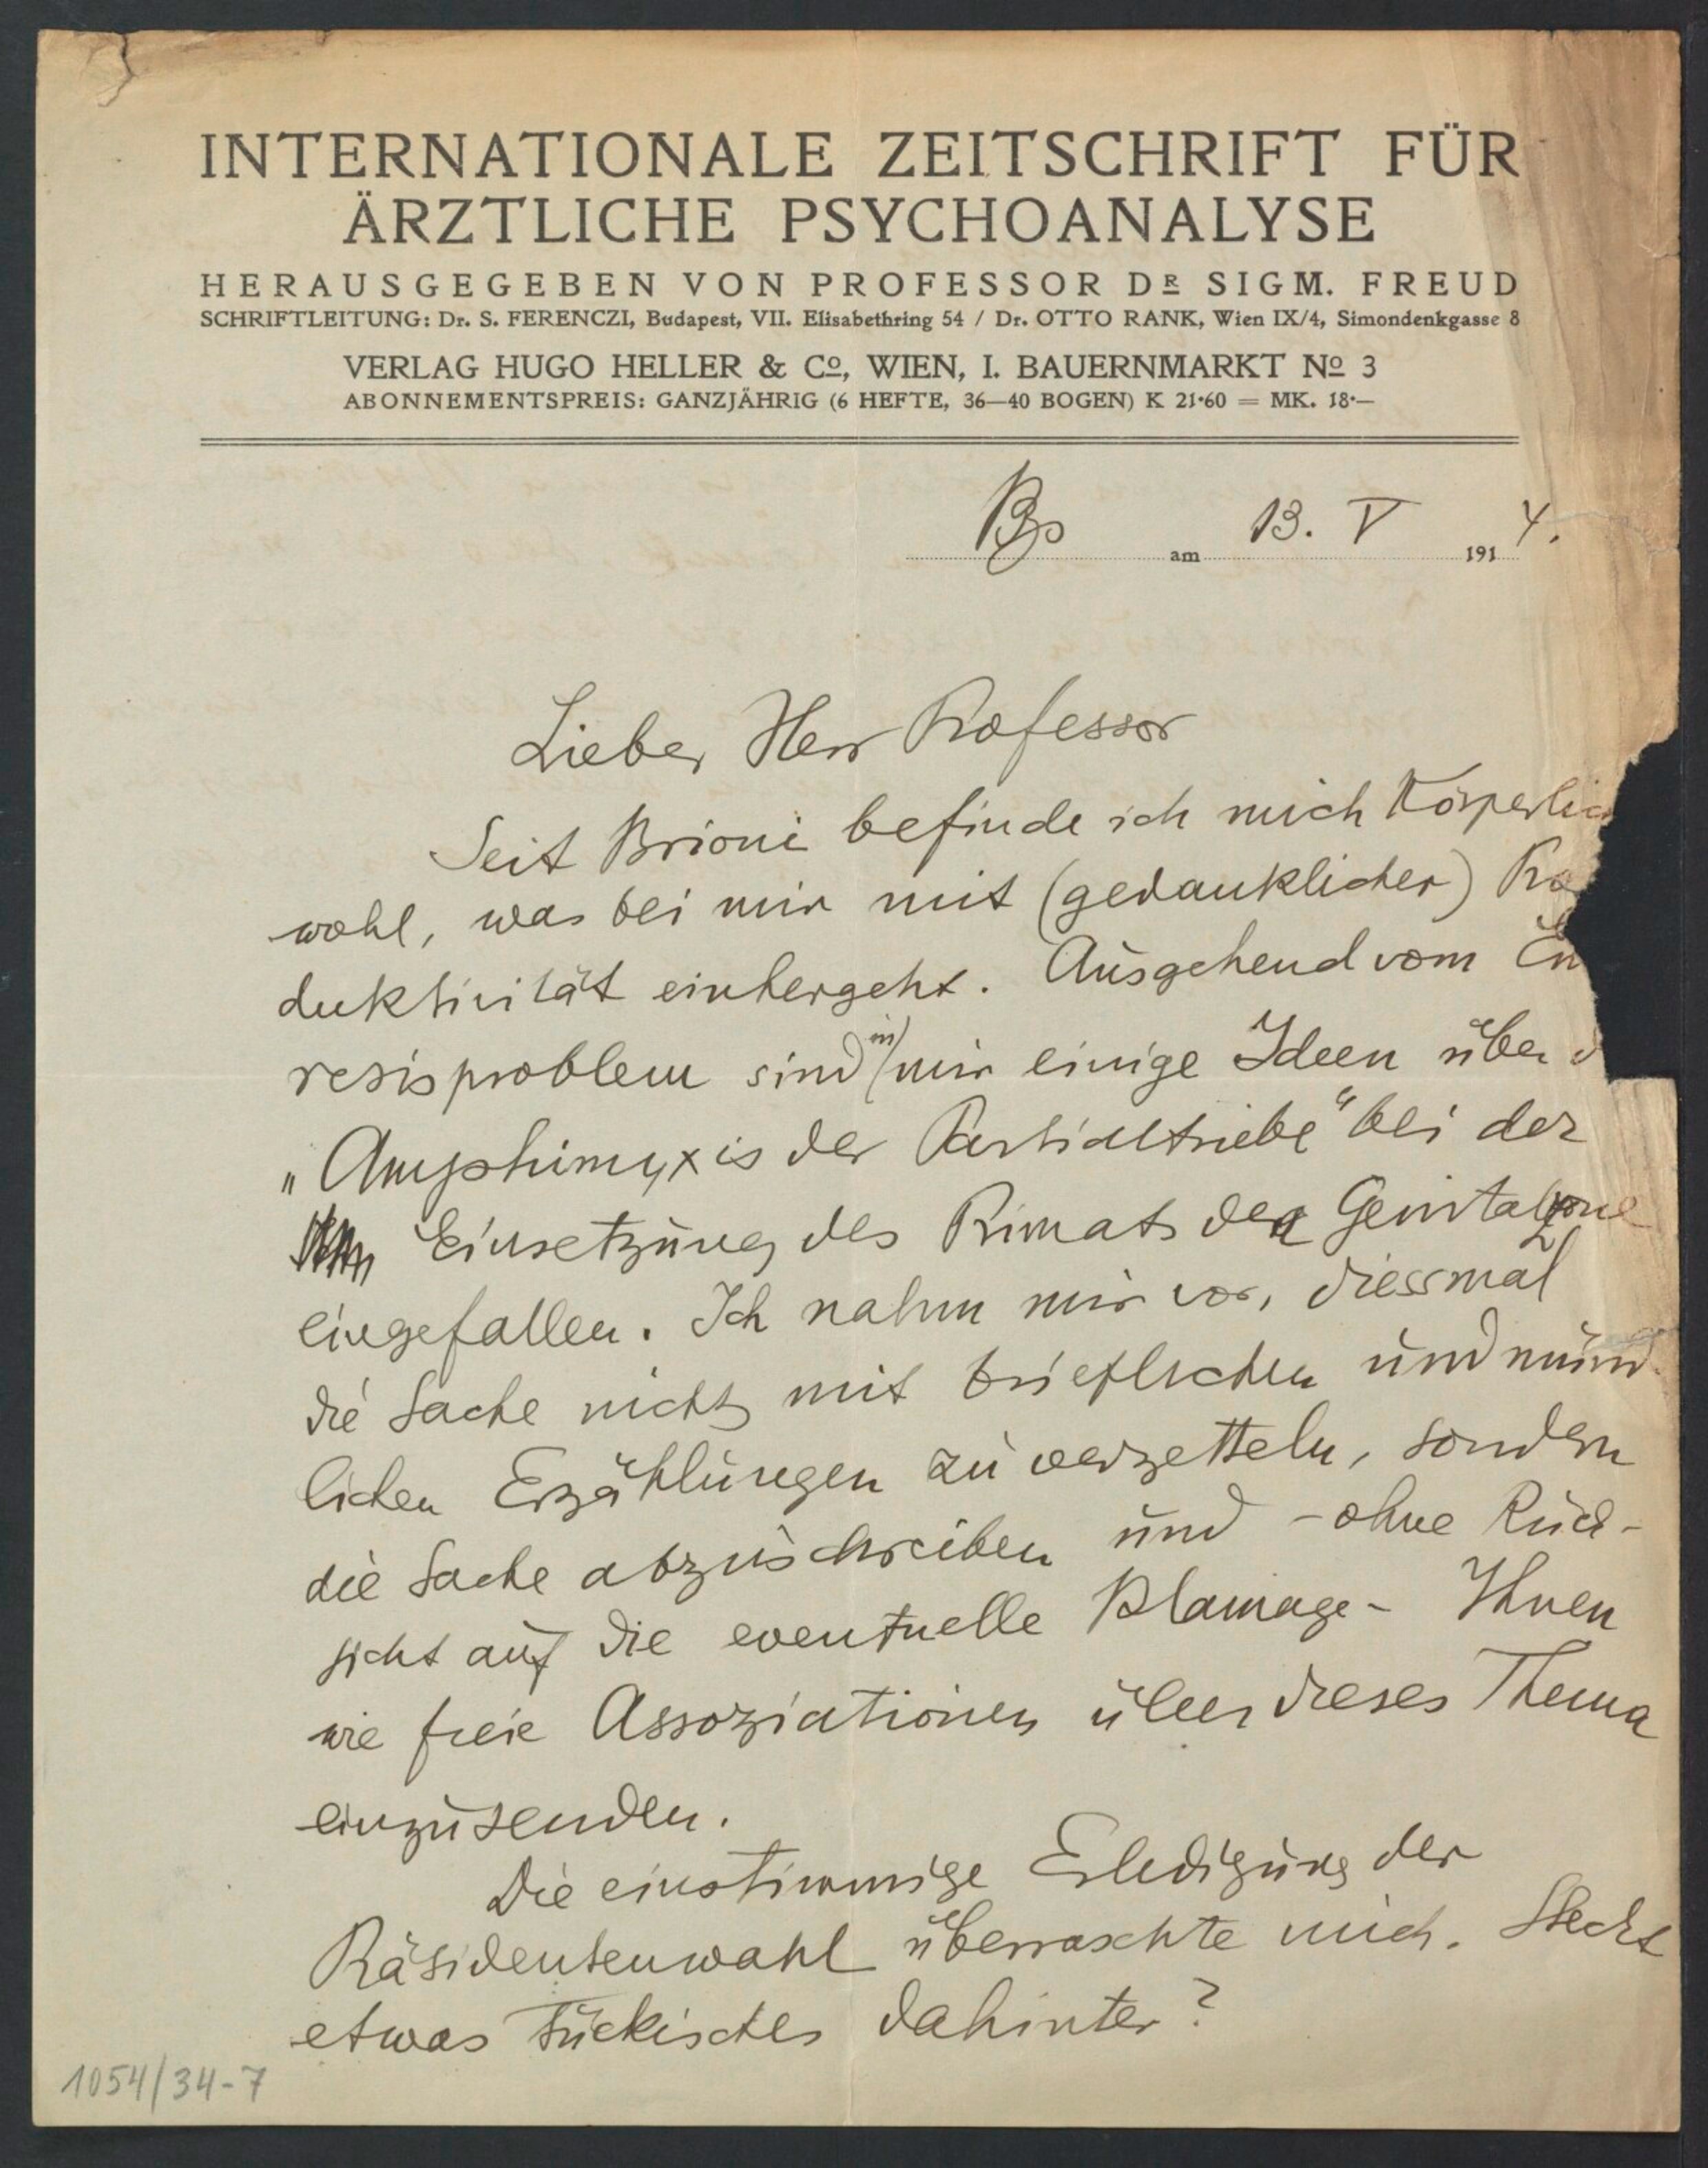 INTERNATIONALE ZEITSCHRIFT FÜR
ÄRZTLICHE PSYCHOANALYSE
HERAUSGEGEBEN VON PROFESSOR DR SIGM. FREUD
SCHRIFTLEITUNG: Dr. S. FERENCZI, Budapest, VII. Elisabethring 54 / Dr. OTTO RANK, Wien IX/4, Simondenkgasse 8
VERLAG HUGO HELLER & Co, WIEN, I. BAUERNMARKT No 3
ABONNEMENTSPREIS: GANZJÄHRIG (6 HEFTE, 36—40 BOGEN) K 21·60 = MK. 18·—
Bp am 13. V 1914.
Lieber Herr Professor
Seit Brioni befinde ich mich körperlic
wohl, was bei mir mit (gedanklicher) Pro
duktivität einhergeht. Ausgehend vom En
resisproblem sind in mir einige Ideen über d
„Amphimyxis der Partialtriebe" bei der
Einsetzung des Primats der Genitalzone
eingefallen. Ich nahm mir vor, diessmal
die Sache nicht mit brieflichen und münd-
lichen Erzählungen zu verzetteln, sondern
die Sache abzuschreiben und - ohne Rück-
sicht auf die eventuelle Blamage - Ihnen
wie freie Assoziationen über dieses Thema
einzusenden.
Die einstimmige Erledigung der
Präsidentenwahl überraschte mich. Steckt
etwas tückisches dahinter?
1054/34-7